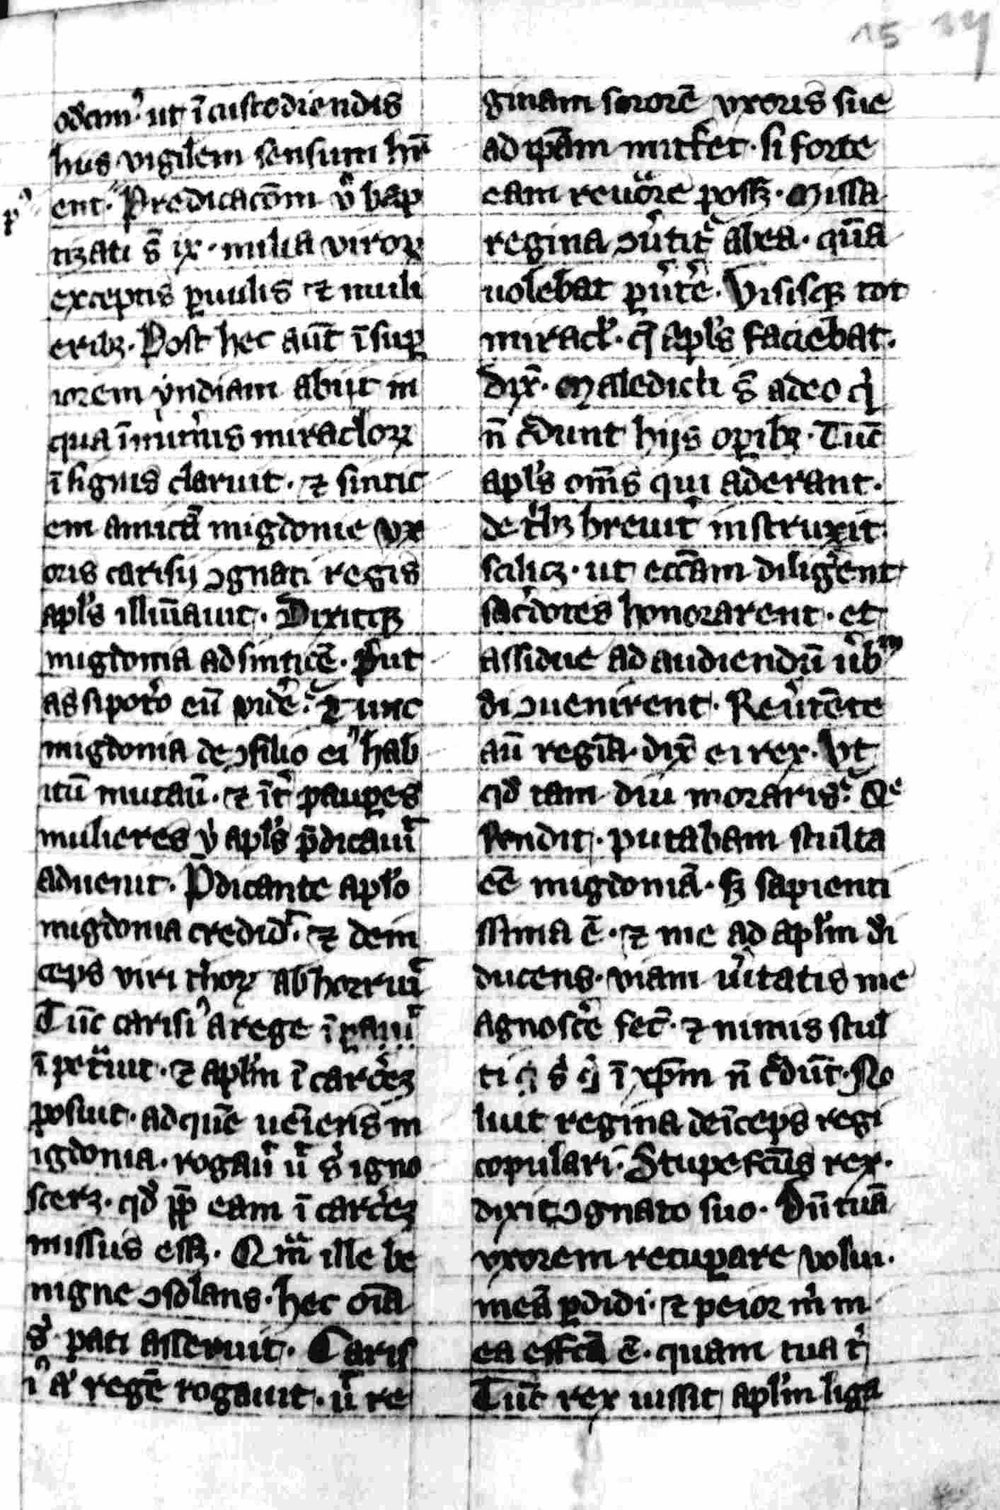 15 14
odam᷒ · ut ī custodiendis
hus vigilem sensum hr̄e
ent · Predicacōm v̉ bap
tizati s̄ ix · milia viroꝝ
exceptis ꝑuulis ⁊ muli
eribꝫ · Post hec aut̄ ī suꝑ
iorem yndiam abiit in
qua īnūm̉is miracloꝝ
ī signis claruit · ⁊ sintic
em amicā migdonie vx
oris carisij ꝯgnati regis
apl̓s illūīauit · Dixitqꝫ
migdonia ad sinticē · put
as si poterō eū vidē · Tunc
migdonia de ꝯsilio ei᷒ hab
itū mutaū · ⁊ īt̉ pauꝑes
mulieres v̉ apl̓s p̄dicauit
aduenit · P̄dicante apl̓o
migdonia credid̓ · ⁊ dein
ceps viri thoꝝ abhorruit
Tūc carisi᷒ a rege
īpet̉uit · ⁊ apl̓m ī carcerē
posuit · ad quē ueīens m
igdonia · rogauit ut s̉ igno
sceret · qd̓ ꝓpt̉ eam ī carcerē
missus esset · Qm̄ ille be
nigne ꝯsolans · hec oīa
s̉ pati asseruit · Caris
i᷒ aūt regē rogauit · ut re
ginam sororē vxoris sue
ad ip̄am mitteret · si forte
eam reuocare posset · Missa
regina ꝯuertit̉ ab ea · quā
uolebat ꝑuertere · Visisqꝫ tot
miracl̓ · q̄ apl̓s faciebat ·
dix̄ · Maledicti s̄ a deo q̉
n̄ c̉dunt hijs oꝑibꝫ · Tūc
apl̓s om̄s qui aderant ·
de t̉bꝫ breuit̉ instruxit
scilicꝫ · ut ecc̄am diligerent
sac̉dotes honorarent · et
assidue ad audiendū v̉bum
di ꝯuenirent · Reuertēte
aūt regīa · dix̄ ei rex · Vt
qd̓ tam diu moraris · Re
spondit · putabam stulta
eē migdoniā · sꝫ sapienti
ssima ē · ⁊ me ad apl̓m di
ducens · viam ueritatis me
agnoscere fec̄ · ⁊ nimis stul
ti s̉ q̉ ī xp̄m n̄ c̉dūt · No
luit regina deīceps regi
copulari · Stupefcūs rex ·
dixit ꝯgnato suo · Dū tuā
vxorem recuꝑare volui ·
meā ꝑdidi · ⁊ peior m̉ m
ea effcā ē · quam tua t̉
Tūc rex iussit apl̓m liga